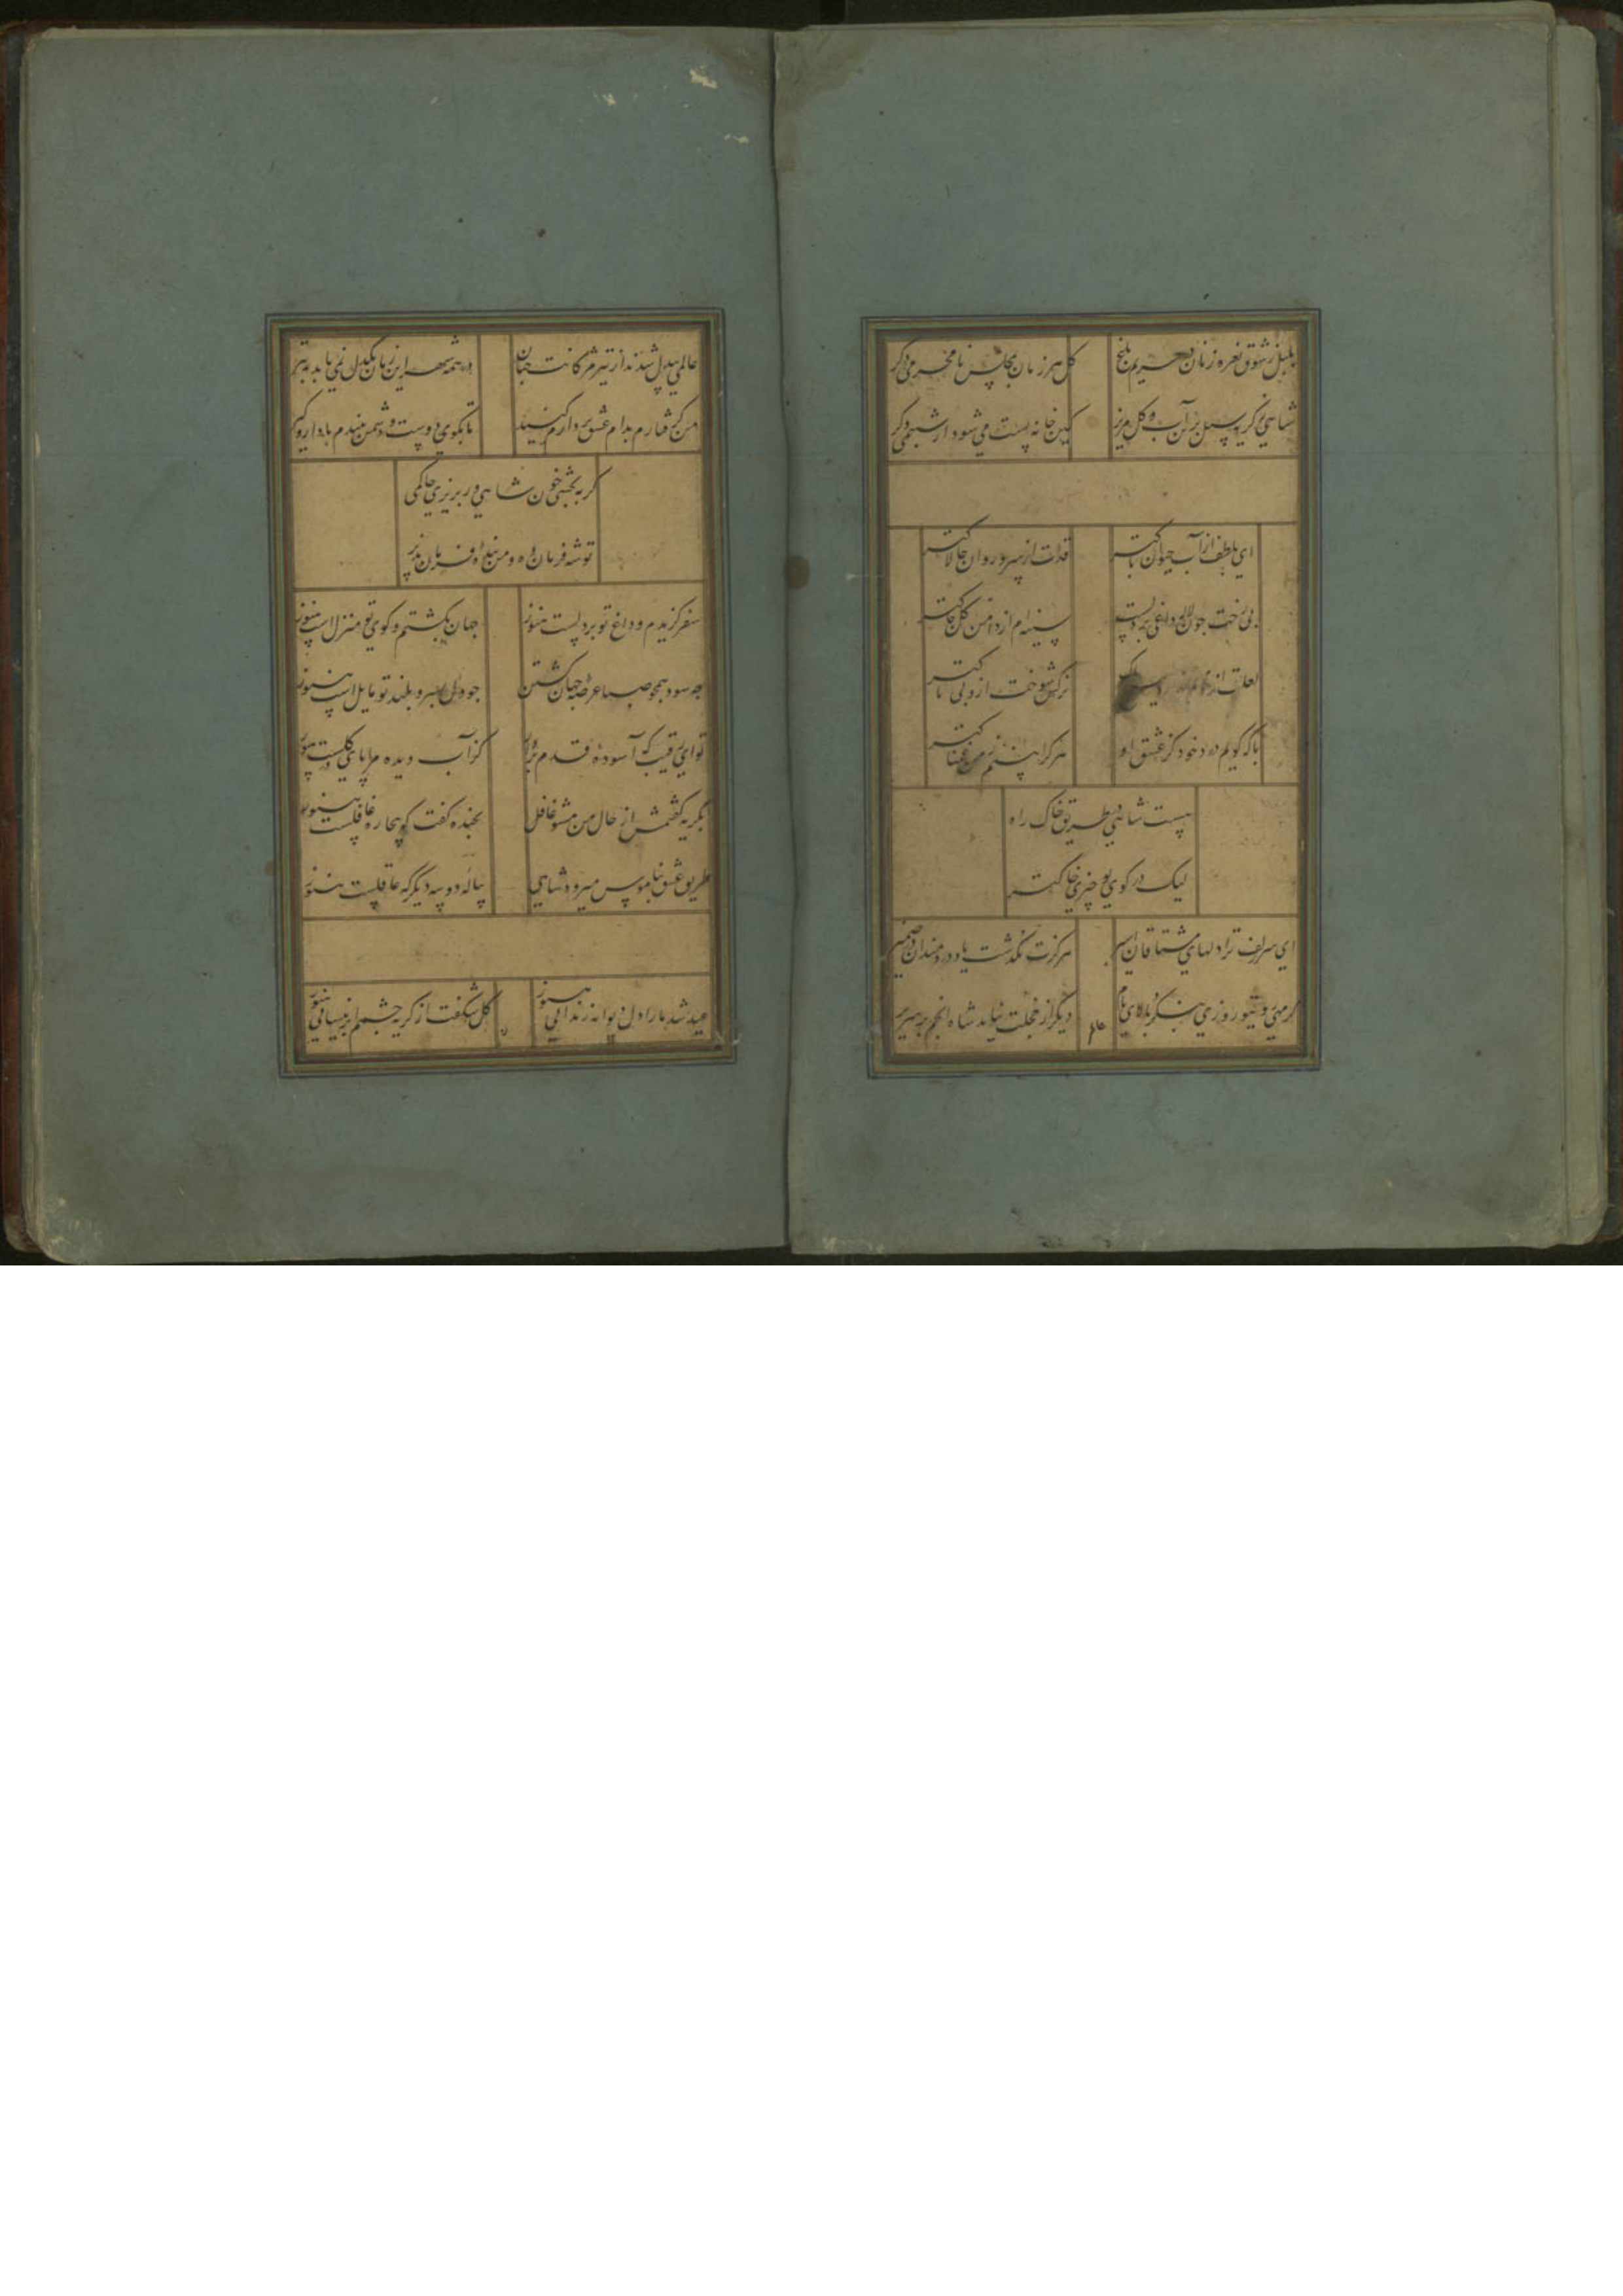 بلبل ز شوق نعره زنان در حریم باغ
گل هر زمان بمجلس نامحرمی دگر
شاهی ز گریه بس بر آن آب و گل مریز
کین خانه پست می شود از شبنمی دگر
ای بلطف از آب حیوان پاکتر
قدت از سرو روان چالاکتر
بی رخت چون لاله داغی بر دلست
سینه ام از دامن گل چاکتر
لعلت از
نرگس شوخت از وبی باکتر
با که گویم درد خود کز عشق او
هر کرا بینم ز من غمناکتر
هست شاهی در طریقت خاک راه
لیک در کوی تو چیزی خاکتر
ای سر زلف ترا دلهای مشتاقان اسیر
هرگزت نگذشت یاد دردمندان در ضمیر
گر مهی و نیم روزی بنگری بالای بام
دیگر از خجلت نیاید شاه انجم بر سریر
عالمی بیدل شدند از تیر مژگانت چنان
در همه شهر این زمان یکدل نمی یابد بتیر
من گرفتارم بدام عشق بردارم کنید
تا بکوی دوست و دشمن بیندم با دار و گیر
گر ببخشی خون شاهی ور بریزی حاکمی
تو شه فرمان ده و من بنده فرمان پذیر
سفر گزیدم و داغ تو بر دلست هنوز
جهان بگشتم و کوی تو منزل است هنوز
چه سود همچو صبا عرصه جهان گشتن
چو دل بسرو بلند تو مایل است هنوز
تو ای رقیب که آسوده قدم بردار
کز آب دیده مرا پای در گلست هنوز
بگریه گفتمش از حال من مشو غافل
بخنده گفت که بیچاره غافلست هنوز
طریق عشق بناموس میرود شاهی
پیاله دو سه دیگر که عاقلست هنوز
عید شد ما را دل دیوانه زندانی هنوز
گل شکفت از گریه چشمم ابر نیسانی هنوز